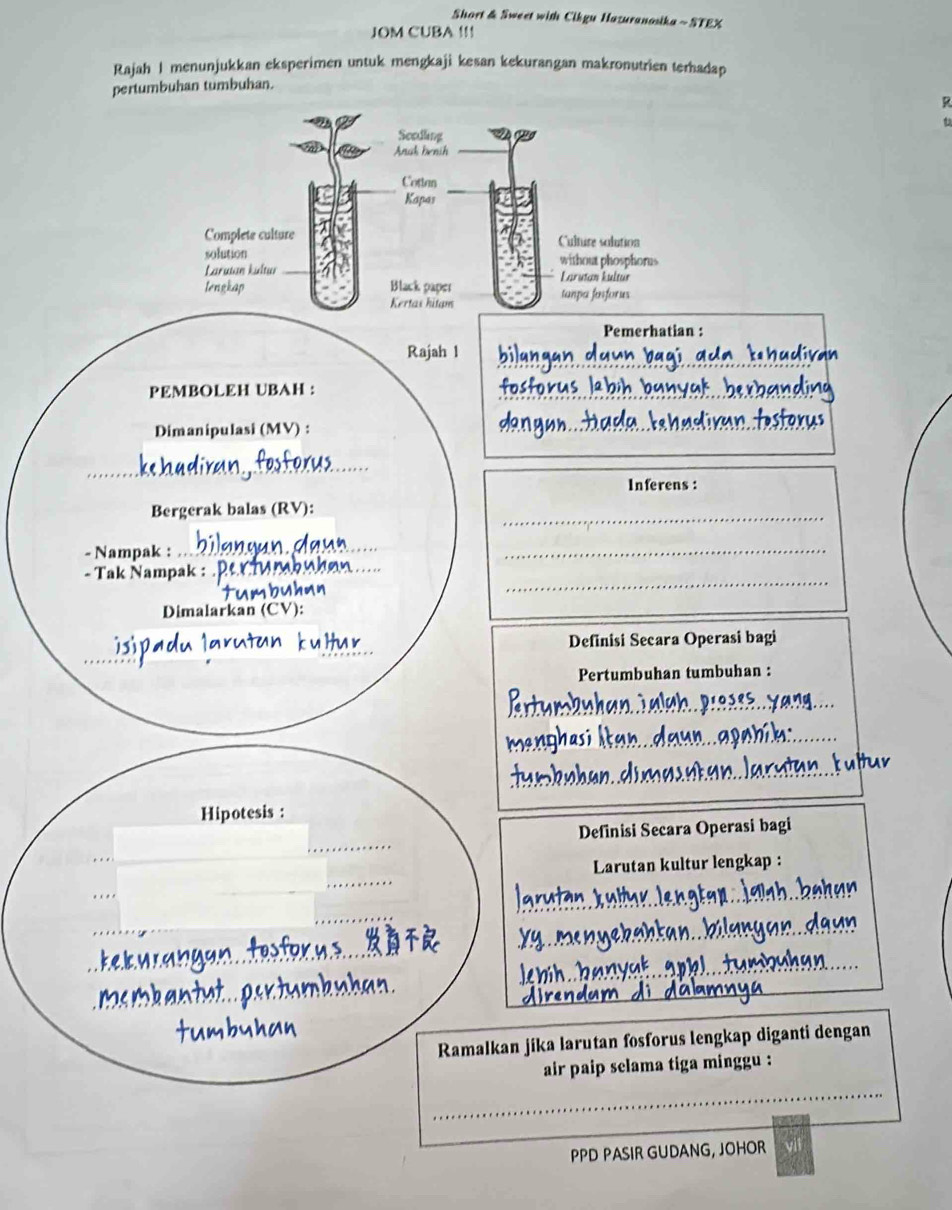 Short & Sweet with Cikgu Hazuranosika ~ STEX
JOM CUBA !!!
Rajah 1 menunjukkan eksperimen untuk mengkaji kesan kekurangan makronutrien terhadap
pertumbuhan tumbuhan.
Seedling
Anak benih
Cotton
Kapas
Complete culture
solution
Larutan kultur
lengkap
Black paper
Kertas hitam
Culture solution
without phosphorus
Larutan kultur
tanpa fosforus
Rajah 1
PEMBOLEH UBAH :
Dimanipulasi (MV) :
kehadiran, fosforus
Bergerak balas (RV):
- Nampak : bilangan daun
- Tak Nampak : pertumbuhan
tumbuhan
Dimalarkan (CV):
isipadu larutan kultur
Pemerhatian :
bilangan daun bagi ada kehadiran
fosforus lebih banyak berbanding
dengan tiada kehadiran fosforus
Inferens :
Definisi Secara Operasi bagi
Pertumbuhan tumbuhan :
Pertumbuhan ialah proses yang
menghasilkan daun apabila
tumbuhan dimasukan larutan kultur
Hipotesis :
kekurangan fosforus 发育不良
membantut pertumbuhan
tumbuhan
Definisi Secara Operasi bagi
Larutan kultur lengkap :
larutan kultur lengkap ialah bahan
yg menyebabkan bilangan daun
lebih banyak apbl tumbuhan
direndam di dalamnya
Ramalkan jika larutan fosforus lengkap diganti dengan
air paip selama tiga minggu :
PPD PASIR GUDANG, JOHOR
vii